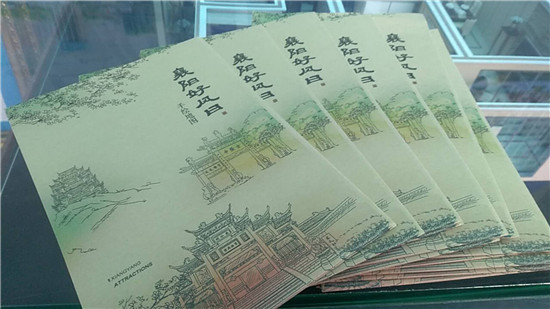 襄阳好风日
手绘地图
XIANGYANG
ATTRACTIONS
襄阳好风日
襄阳好风日
襄阳好风日
襄阳好风日